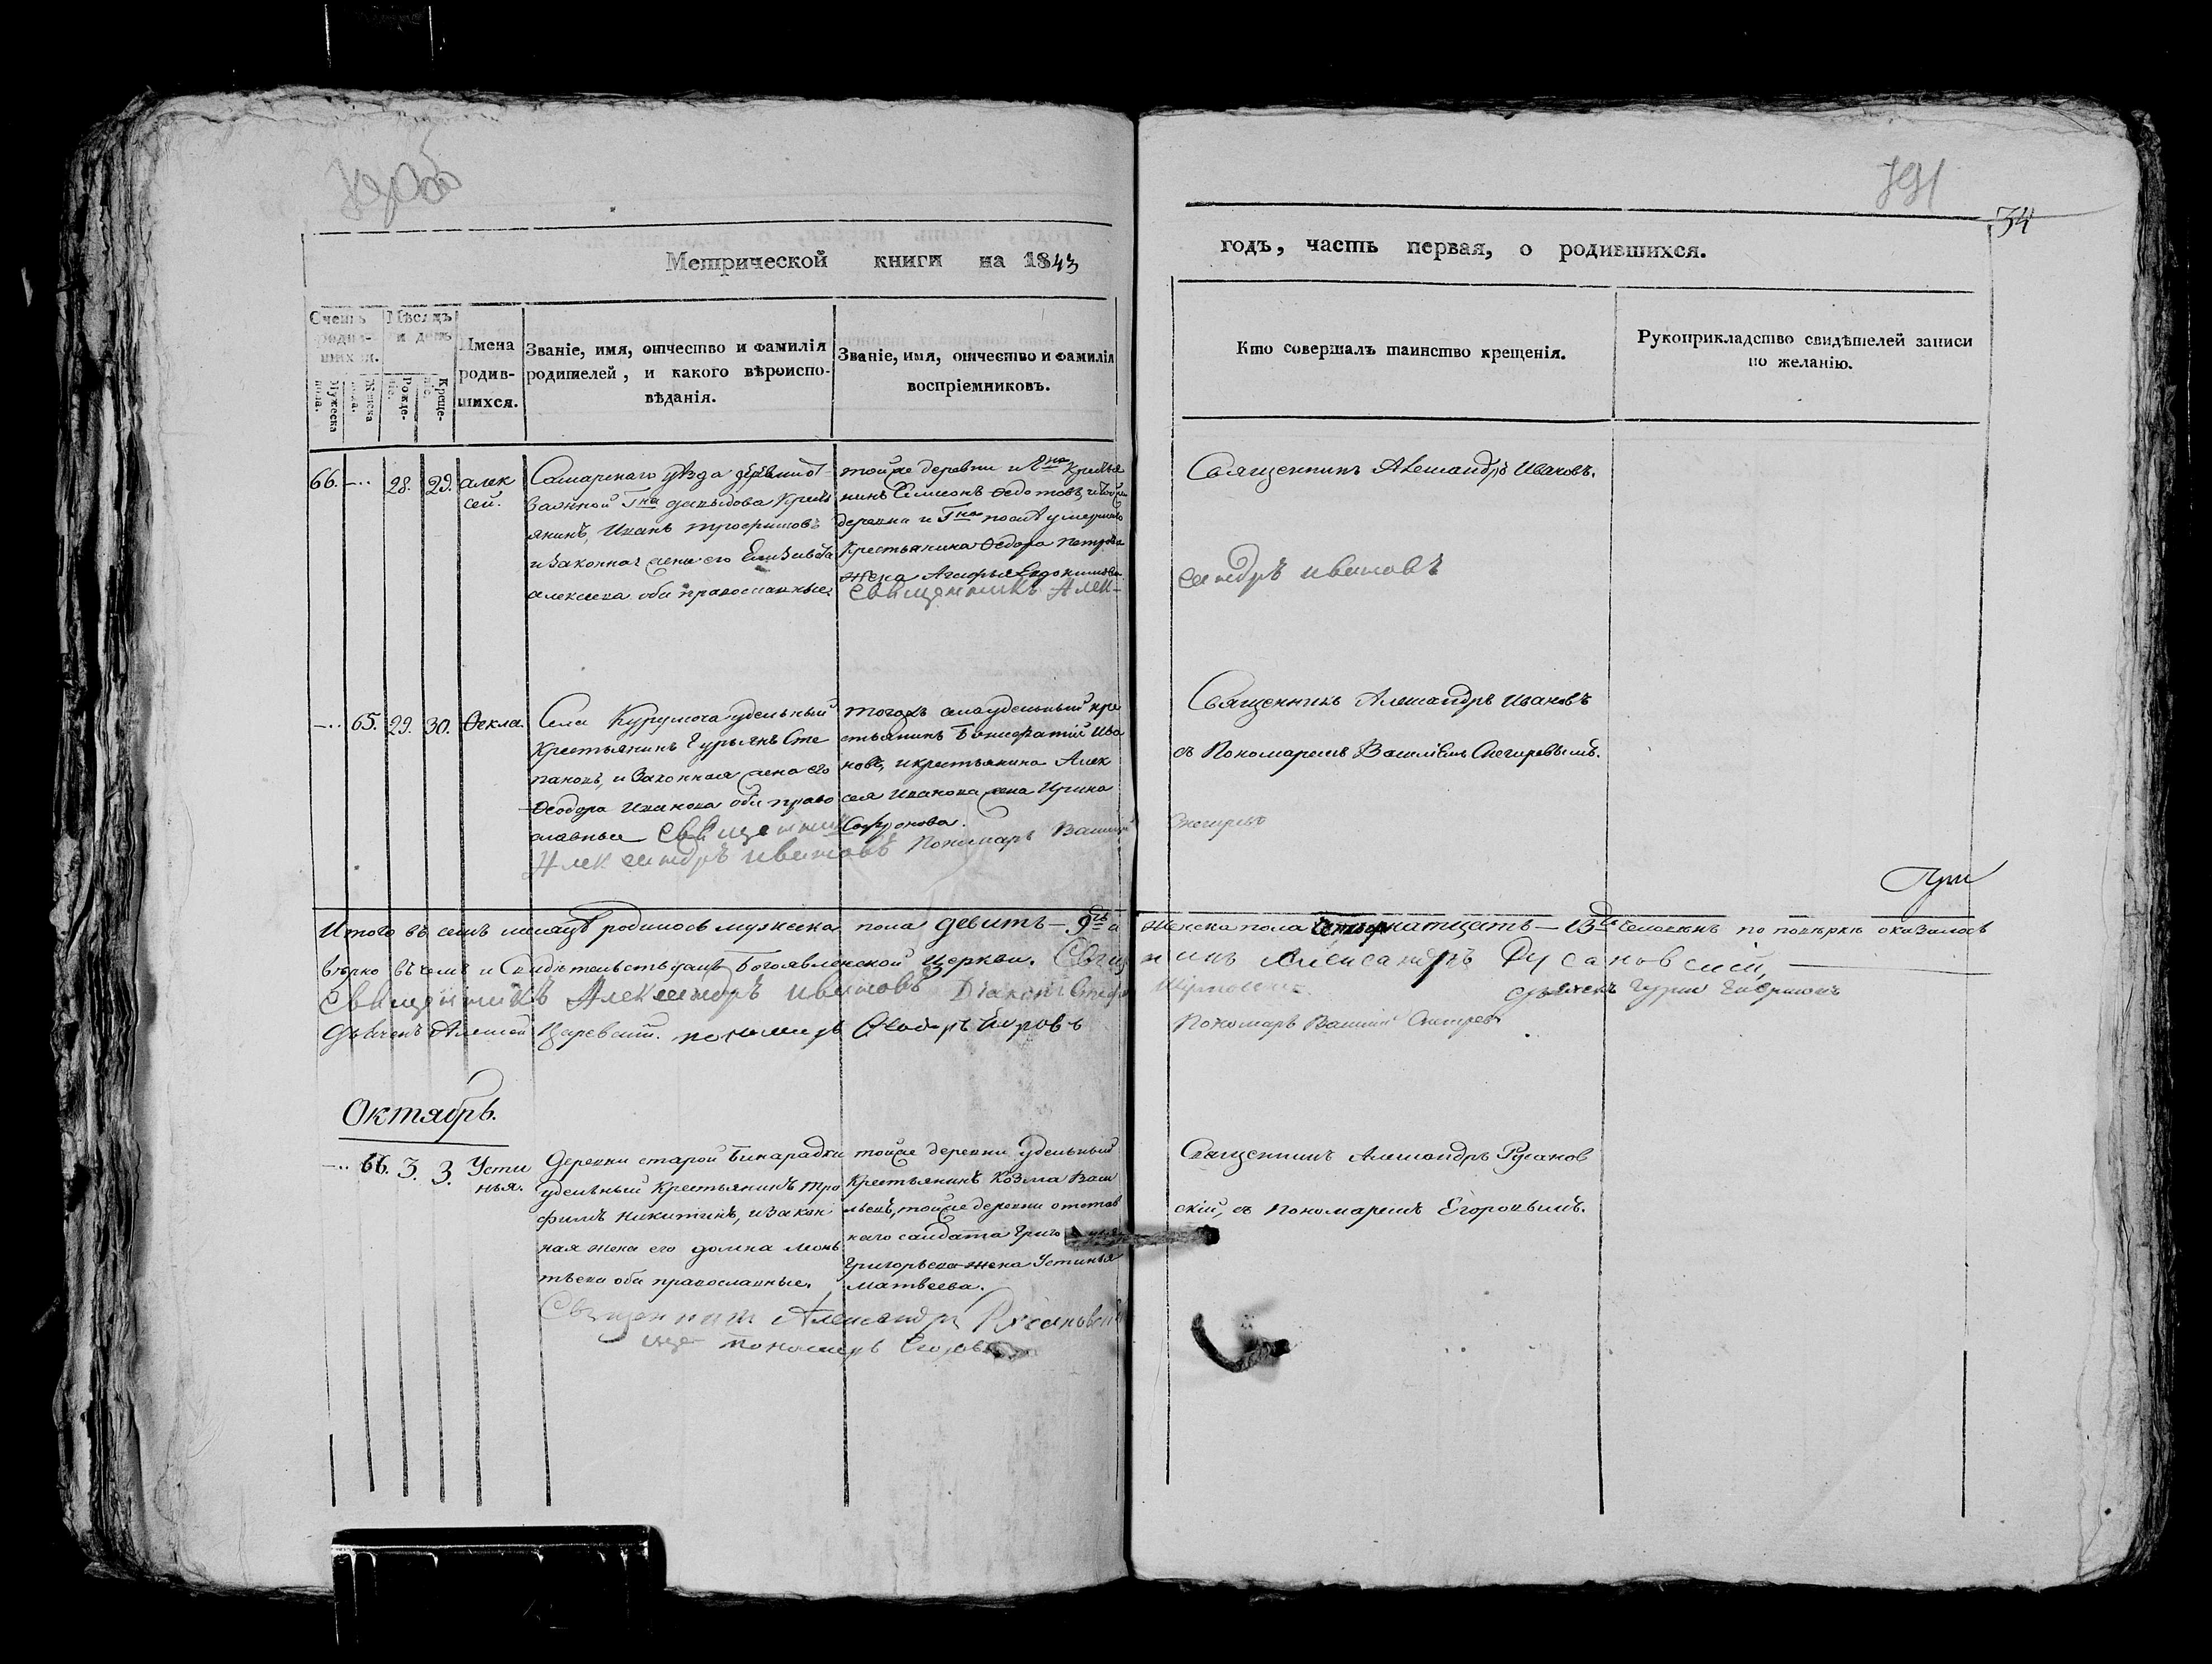 34
Метрической книги на 1843
годъ, часть первая, о родившихся.
Счетъ родившихся.
Мужеска пола.
Женска пола.
Мѣсяцъ и день
Рожденія.
Крещенія.
Имена
родив-
шихся.
Званіе, имя, отчество и фамилія
родителей, и какого вѣроиспо-
вѣданія.
Званіе, имя, отчество и фамилія
воспріемниковъ.
Кто совершалъ таинство крещенія.
Рукоприкладство свидѣтелей записи
по желанію.
66. -.. 28. 29. алек
сей.
Самарскаго уѣзда деревни От
важной Гна давыдова Крест
янинъ, Иванъ трофимовъ
и Законная жена его Елизавета
алексеева оба православные
тойже деревни и Гна Крестья
нинъ Симеонъ Федотовъ, и тойже
деревни и Гна умершаго
Крестьянина Федора петрова
жена Агафья Евдокимова.
Священникъ Алек-
Священникъ Александръ Ивановъ.
сандръ Ивановъ
-.. 65. 29. 30. Фекла.
Села Курумоча удельный
Крестьянинъ Гурьянъ Сте
пановъ, и Законная жена его
Феодора Иванова оба право
славные Священникъ
Александръ Ивановъ
тогожъ села удельный кре
стьянинъ Вонифатий Ива
новъ, и крестьянина Алек
сея Иванова жена Ирина
Сафронова.
Пономарь Василий
Священникъ Александръ Ивановъ
съ Пономаремъ Василіемъ Снегиревымъ.
Снегиревъ
При
Итого въ семъ месяцѣ родилось мужеска пола девять — 9ть а
женска пола — 13 человѣкъ по повѣркѣ оказалось
вѣрно въ чемъ и Свидѣтельствуемъ Богоявленской Церкви. Священ
никъ Александръ Русановский,
Священникъ Александръ Ивановъ Діаконъ
дьячекъ Гурий
дьячекъ Алексей Царевский. пономарь Егоровъ
Пономарь Василий Снегирев
Октябрь.
-.. 66. 3. 3. Усти
нья.
Деревни старой Бинарадки
удельный Крестьянинъ Тро
фимъ Никитинъ, и закон
ная жена его домна Леонь
тьева оба православные.
Священникъ Александръ Русановский
пономарь Егоровъ
тойже деревни удельный
Крестьянинъ Козма Васи
льевъ, тойже деревни отстав
наго салдата Григо
Григорьева жена Устинья
Матвеева.
Священникъ Александръ Русанов
скій, съ пономаремъ Егоровымъ.